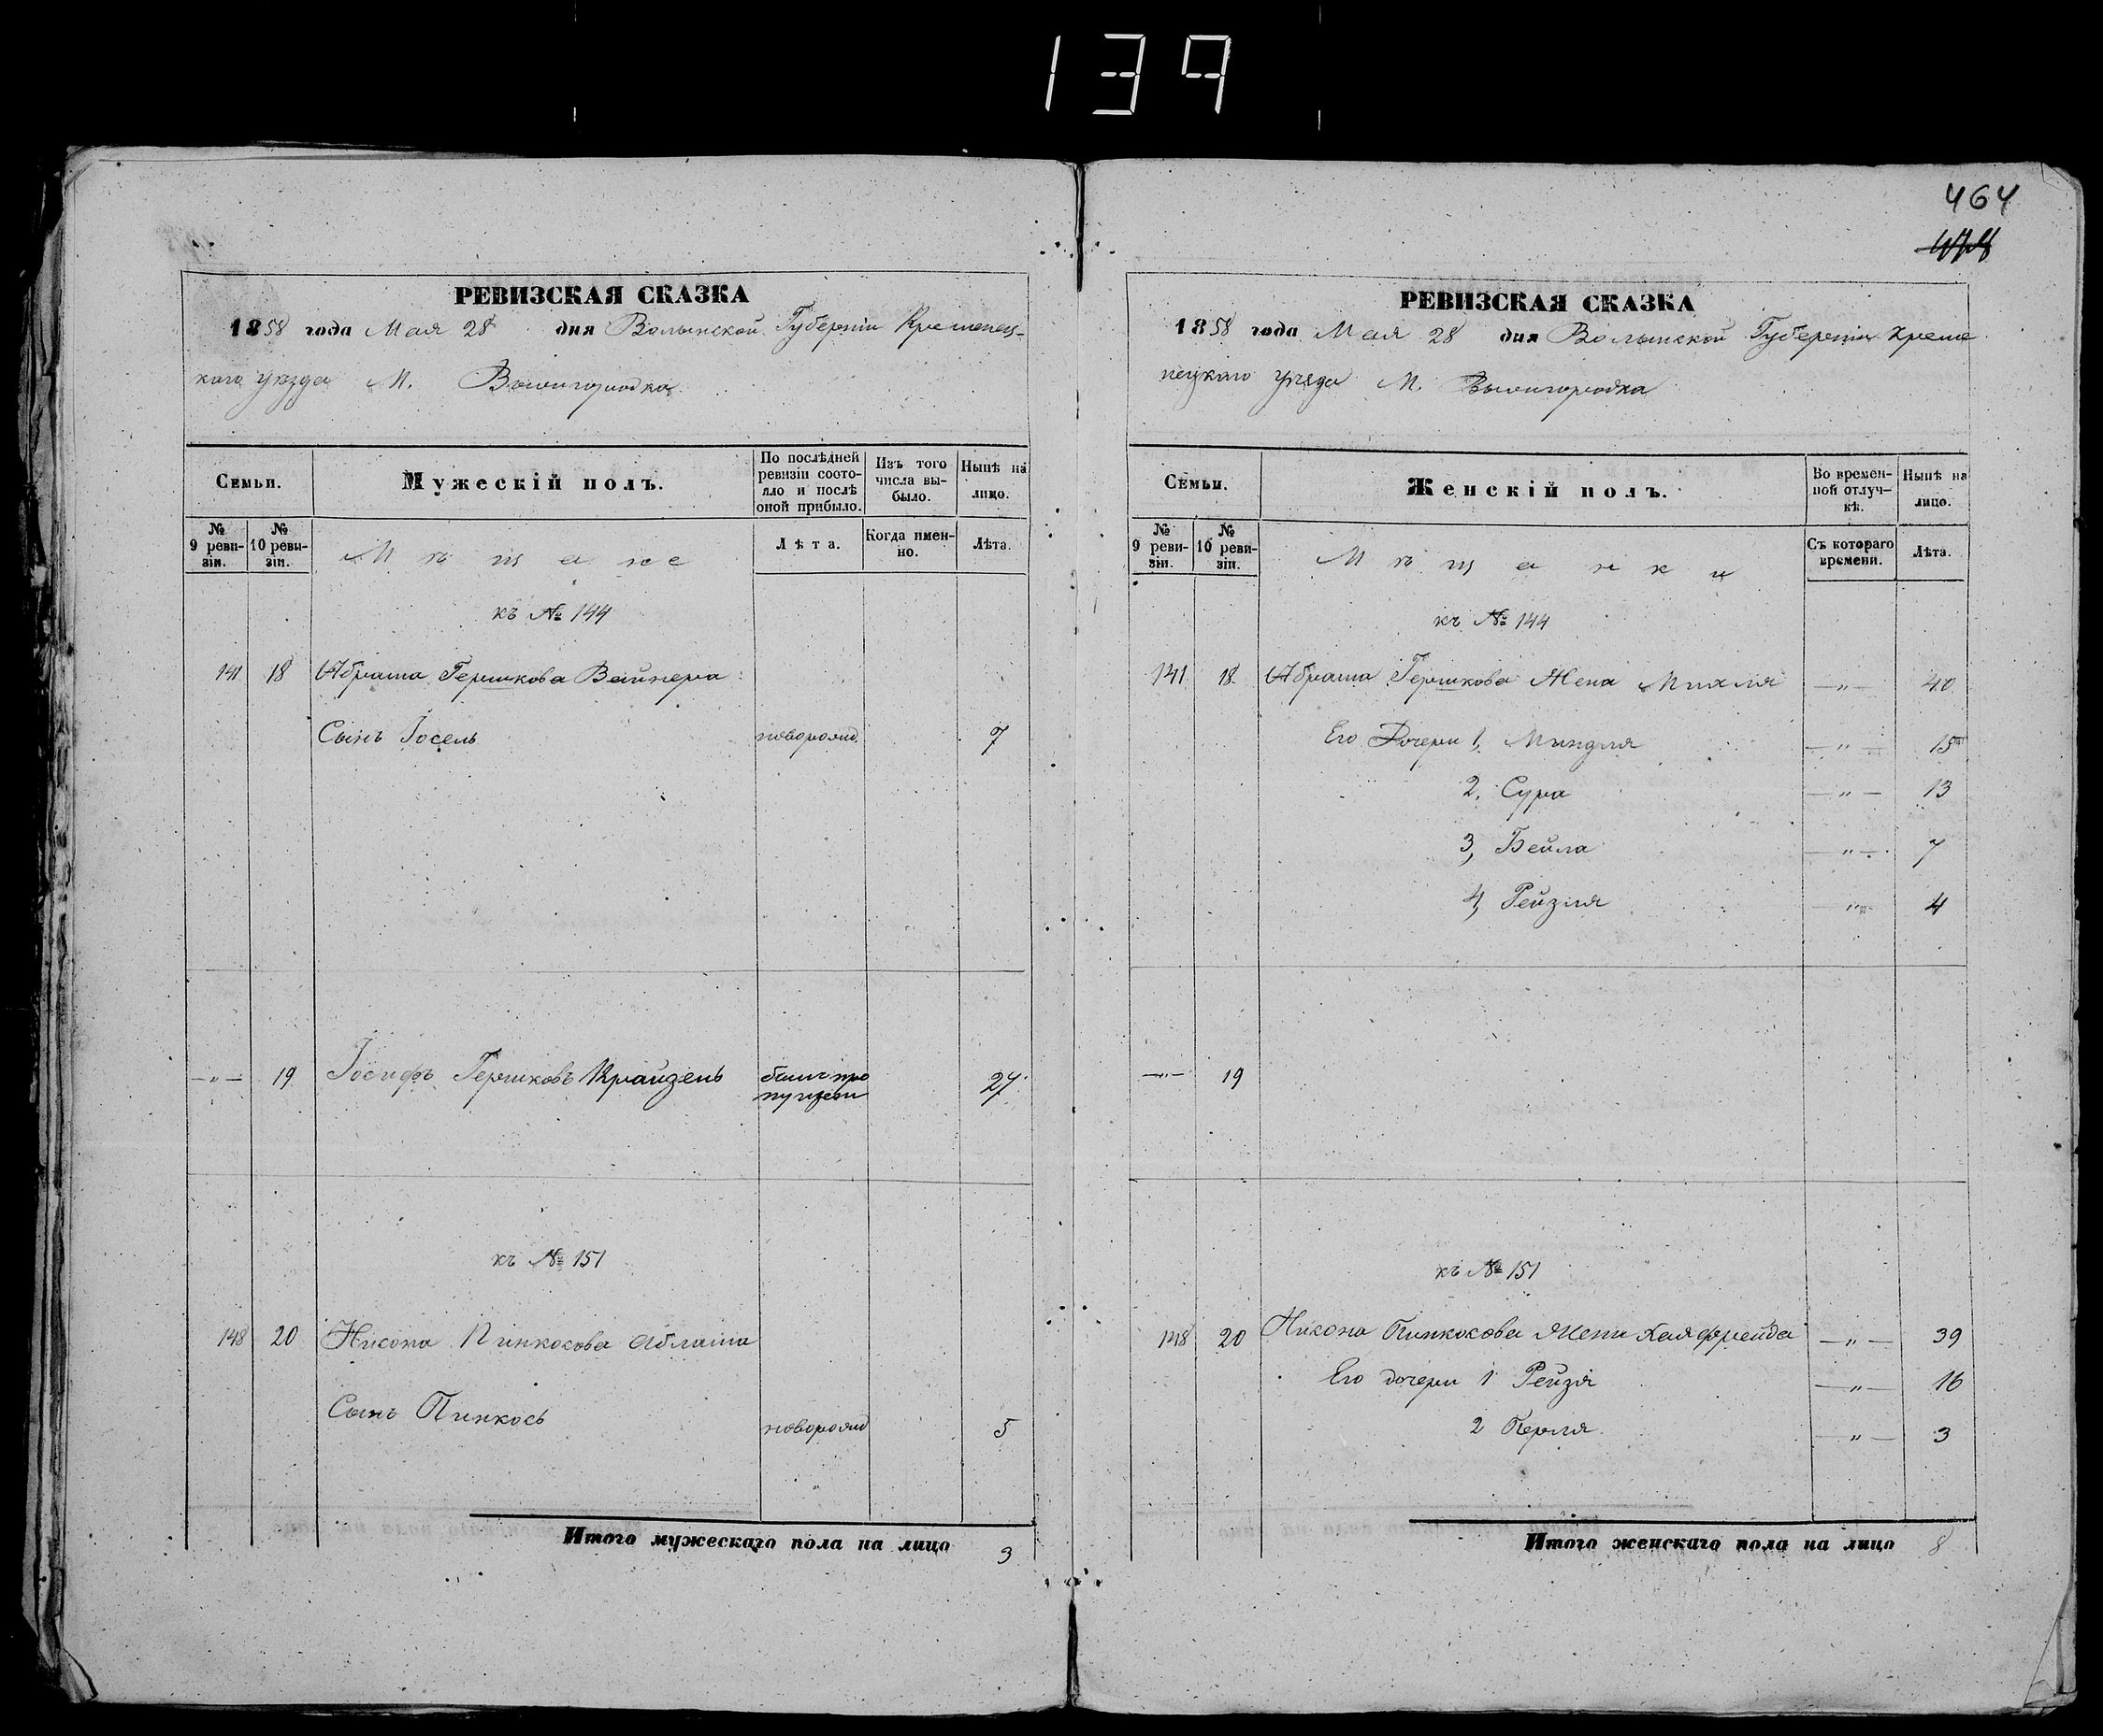 139
464
РЕВИЗСКАЯ СКАЗКА
1858 года Мая 28 дня Волынской Губерніи Кременец-
каго уѣзда М. Вышгородка
Семьи.
Мужескій полъ.
По послѣдней ревизіи состояло и послѣ оной прибыло.
Изъ того числа выбыло.
Нынѣ на лицо.
№ 9 реви-зіи.
№ 10 реви-зіи.
Мѣщане
Лѣта.
Когда имен-но.
Лѣта.
къ № 144
141 18 Абрама Гершкова Вайнера
Сынъ Іосель новорожд 7
къ № 144
—„— 19 Іосифъ Гершковъ Крайзель былъ про 27
пущенъ
къ № 151
148 20 Нисона Пинкосова
Сынъ Пинкось новорожд 5
Итого мужескаго пола на лицо 3
РЕВИЗСКАЯ СКАЗКА
1858 года Мая 28 дня Волынской Губерніи Креме
нецкаго уѣзда М. Вышгородка
Семьи.
Женскій полъ.
Во времен-ной отлуч-кѣ.
Нынѣ на лицо.
№ 9 реви-зіи.
№ 10 реви-зіи.
Мѣщанки
Съ котораго времени.
Лѣта.
къ № 144
141 18 Абрама Гершкова Жена Михля —„— 40
Его Дочери 1, Миндля —„— 15
2, Сура —„— 13
3, Бейла —„— 7
4, Рейзля —„— 4
—„— 19
къ № 151
148 20 Нисона Пинкосова Жена Хая Фрейда —„— 39
Его дочери 1 Рейзя —„— 16
2 Перля —„— 3
Итого женскаго пола на лицо 8